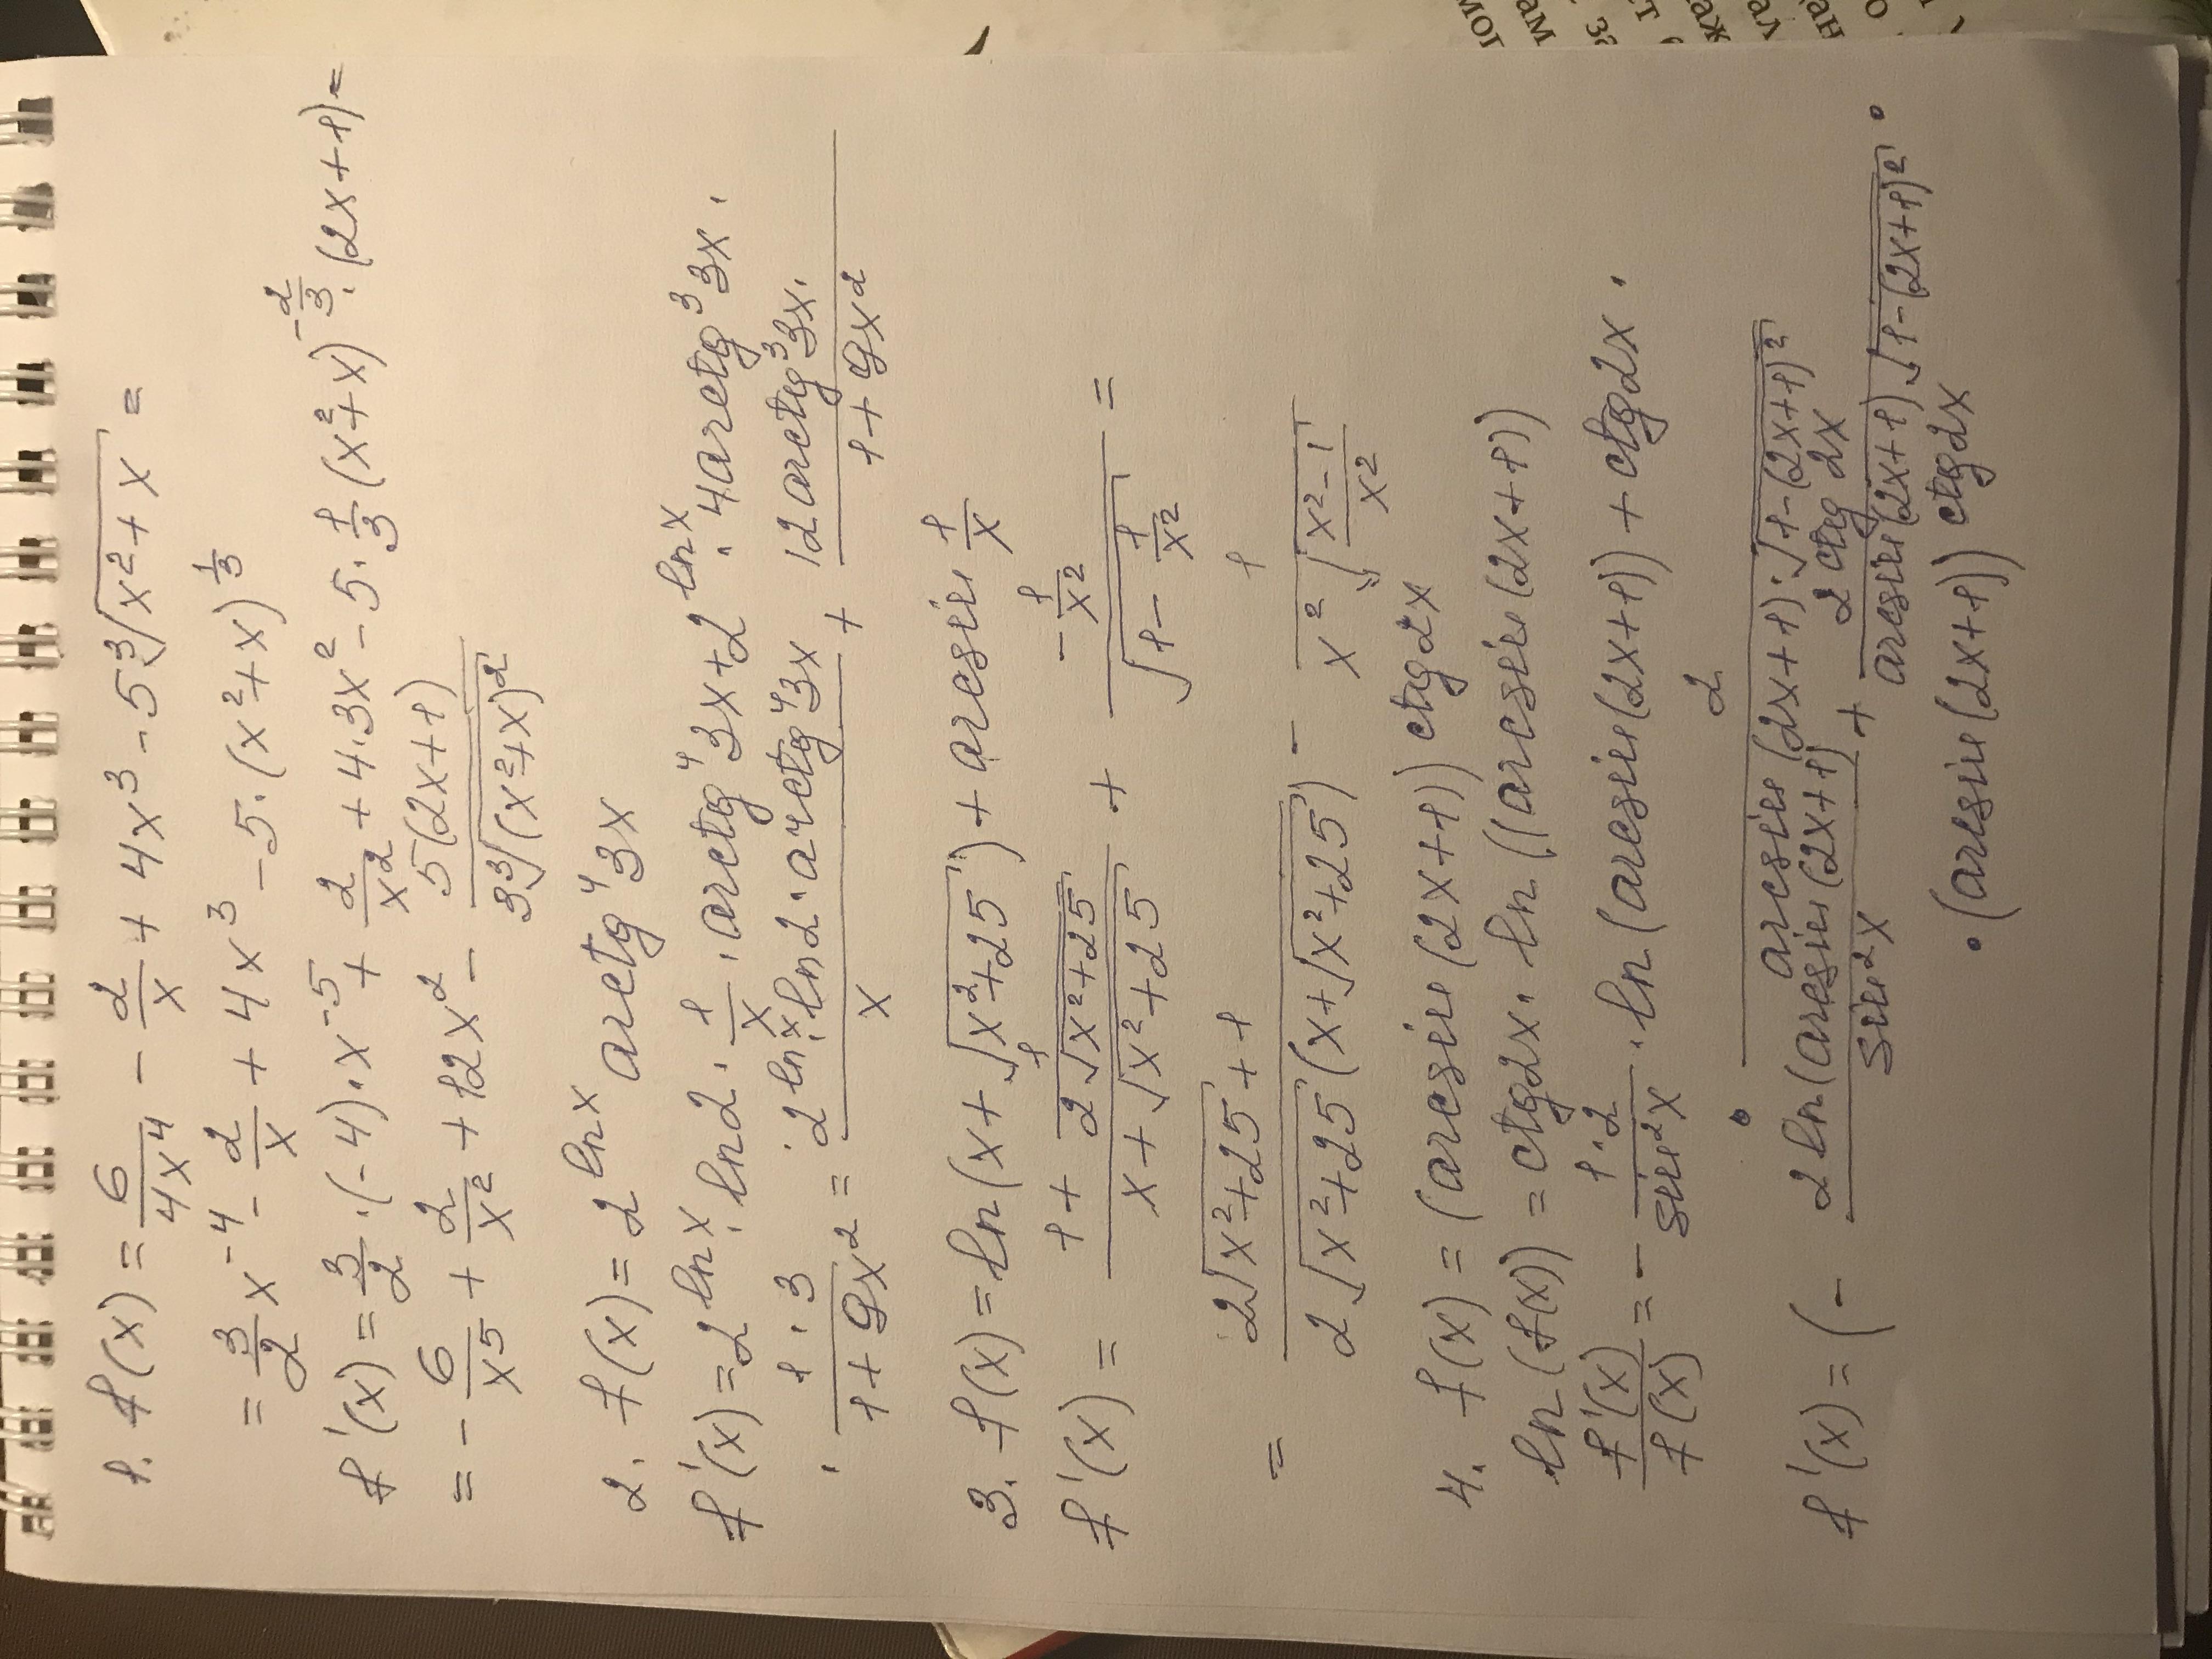 1. f(x) = 6/(4x⁴) - 2/x + 4x³ - 5∛(x²+x) =
= 3/2 x⁻⁴ - 2/x + 4x³ - 5·(x²+x)^(1/3)
f'(x) = 3/2·(-4)·x⁻⁵ + 2/x² + 4·3x² - 5·1/3(x²+x)^(-2/3)·(2x+1) =
= -6/x⁵ + 2/x² + 12x² - 5(2x+1)/(3∛(x²+x)²)
2. f(x) = 2^(ln x) arctg⁴3x
f'(x) = 2^(ln x)·ln2·1/x·arctg⁴3x + 2^(ln x)·4arctg³3x·
·1·3/(1+9x²) = 2^(ln x)·ln2·arctg⁴3x/x + 12arctg³3x·/(1+9x²)
3. f(x) = ln(x+√(x²+25)) + arcsin 1/x
f'(x) = (1 + 1/(2√(x²+25)))/(x+√(x²+25)) + (-1/x²)/√(1-1/x²) =
= (2√(x²+25)+1)/(2√(x²+25)(x+√(x²+25))) - 1/(x²√((x²-1)/x²))
4. f(x) = (arcsin(2x+1))^(ctg2x)
ln(f(x)) = ctg2x·ln((arcsin(2x+1))
f'(x)/f(x) = -1·2/sin²x·ln(arcsin(2x+1)) + ctg2x·
· 2/(arcsin(2x+1)·√(1-(2x+1)²))
f'(x) = (- 2ln(arcsin(2x+1))/sin²x + 2ctg2x/(arcsin(2x+1)√(1-(2x+1)²))·
·(arcsin(2x+1))^(ctg2x)